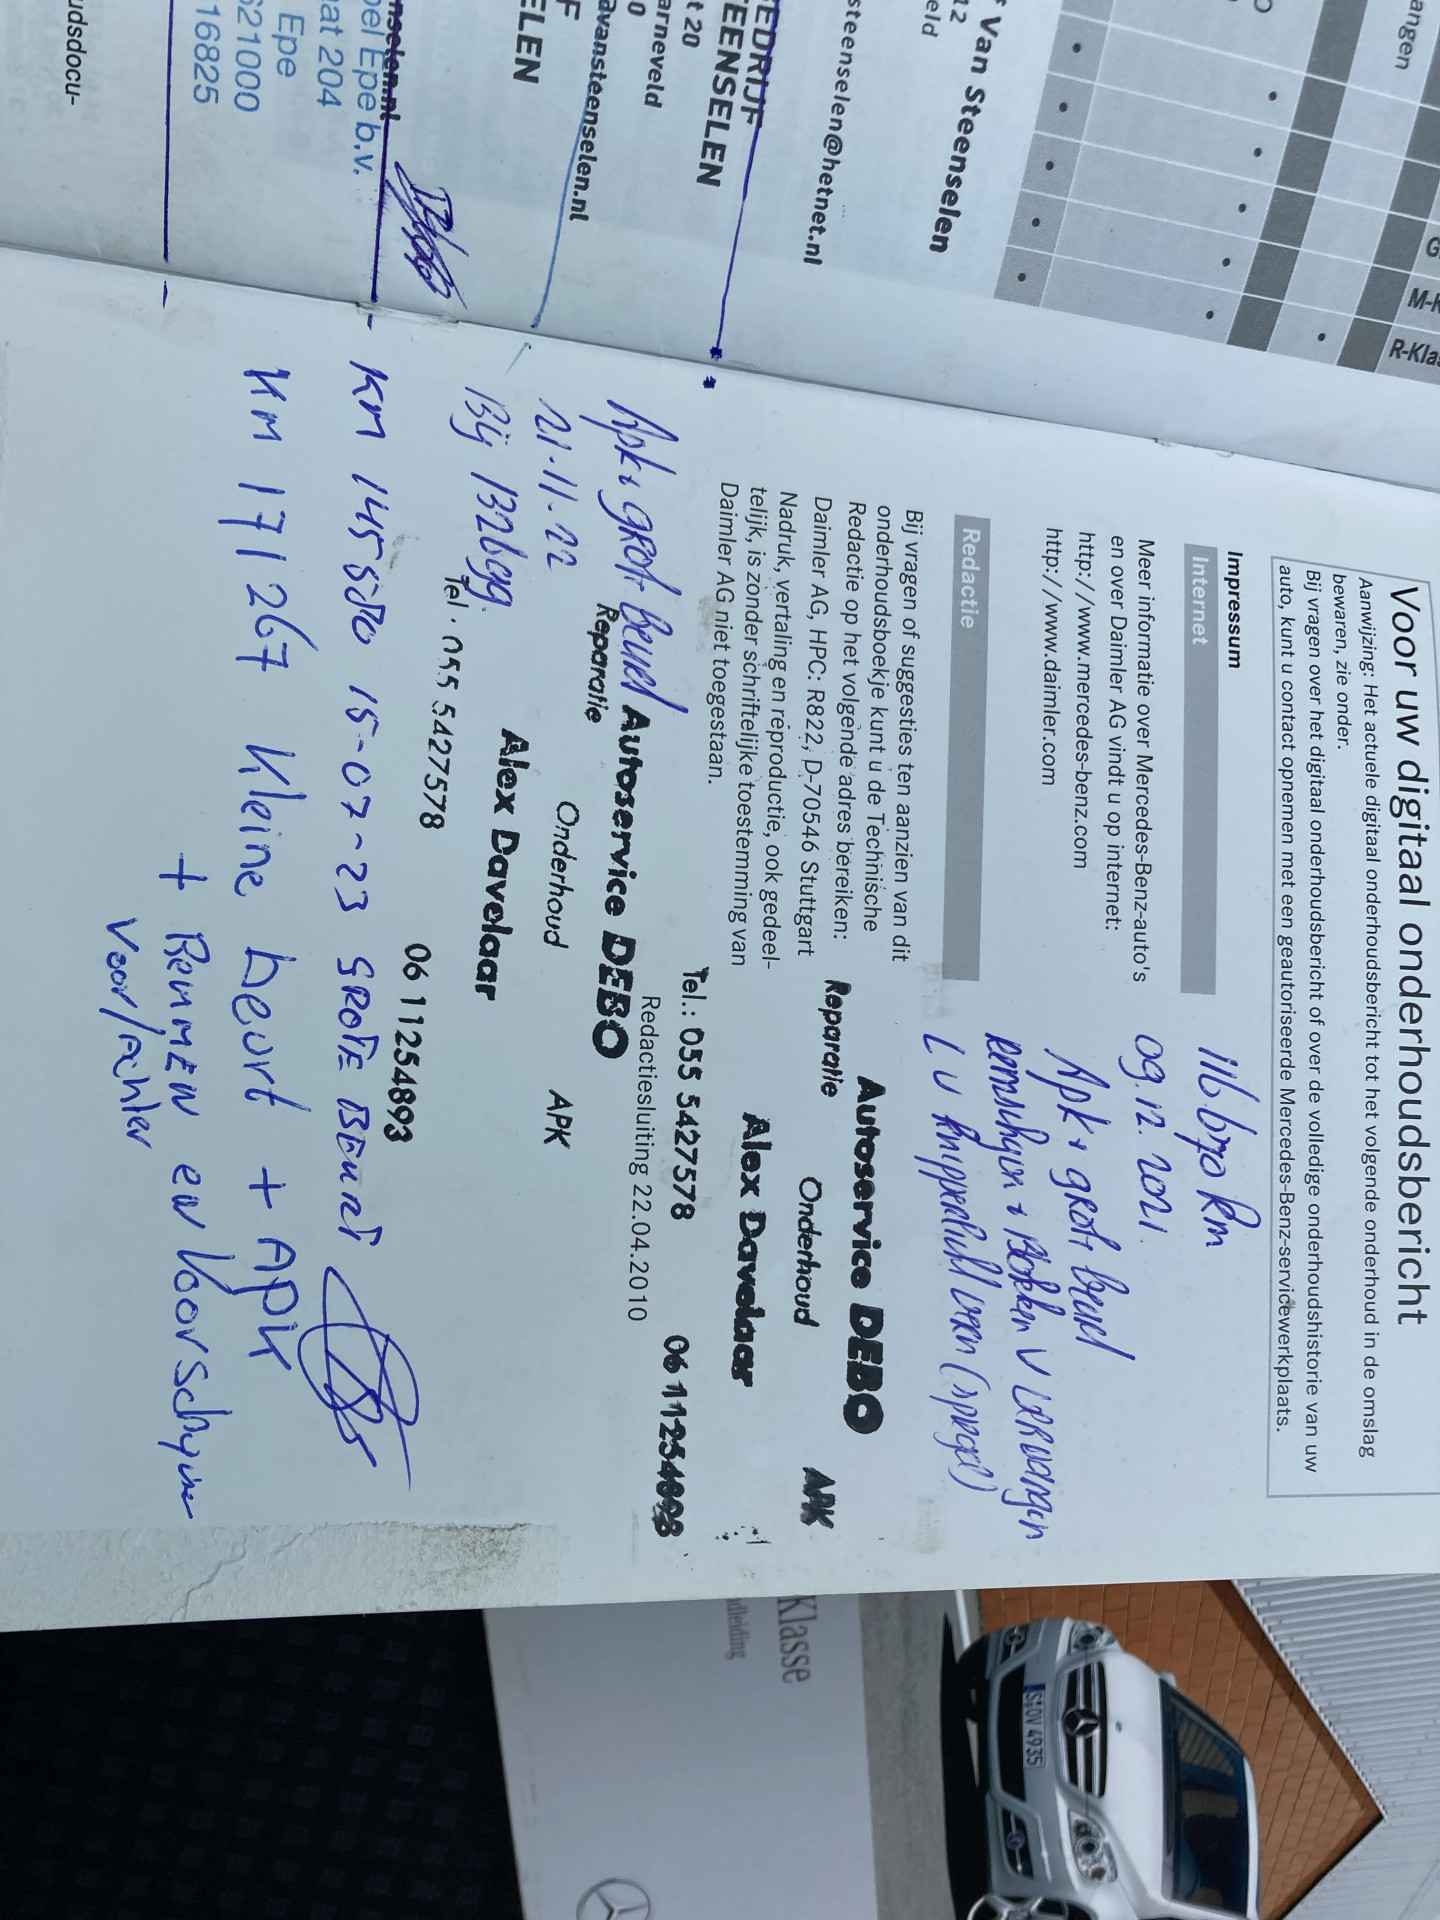 angen
G
M-K
R-Kla
r Van Steenselen
12
eld
steenselen@hetnet.nl
BEDRIJF
TEENSELEN
t 20
arneveld
0
avansteenselen.nl
F
ELEN
nselen.nl
pel Epe b.v.
aat 204
Epe
621000
16825
udsdocu-
Voor uw digitaal onderhoudsbericht
Aanwijzing: Het actuele digitaal onderhoudsbericht tot het volgende onderhoud in de omslag
bewaren, zie onder.
Bij vragen over het digitaal onderhoudsbericht of over de volledige onderhoudshistorie van uw
auto, kunt u contact opnemen met een geautoriseerde Mercedes-Benz-servicewerkplaats.
Impressum
Internet
Meer informatie over Mercedes-Benz-auto's
en over Daimler AG vindt u op internet:
http://www.mercedes-benz.com
http://www.daimler.com
Redactie
Bij vragen of suggesties ten aanzien van dit
onderhoudsboekje kunt u de Technische
Redactie op het volgende adres bereiken:
Daimler AG, HPC: R822, D-70546 Stuttgart
Nadruk, vertaling en reproductie, ook gedeel-
telijk, is zonder schriftelijke toestemming van
Daimler AG niet toegestaan.
116.670 km
09.12.2021.
Apk + grote beurt
+ Blokken V vervangen
L V knipperlicht (spiegel)
Autoservice DEBO
Reparatie Onderhoud APK
Alex Davelaar
Tel.: 055 5427578 06 11254893
Redactiesluiting 22.04.2010
Apk + grote beurt
21-11-22
Bij 132699.
Autoservice DEBO
Reparatie Onderhoud APK
Alex Davelaar
Tel. 055 5427578 06 11254893
- Km 145580 15-07-23 GROTE BEURT
Km 171267 Kleine beurt + APK
+ Remmen en Voorschijven
Voor/Achter
Klasse
ndleiding
S:OV 4935